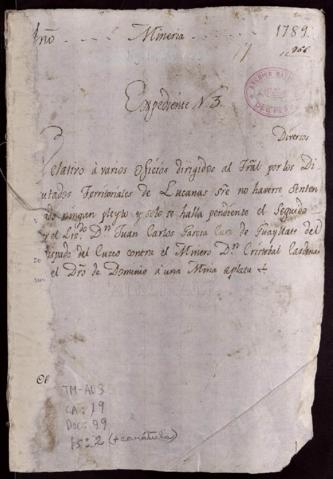 Año Mineria 1789
Expediente N 3
Diversos
Relativo à varios Oficios dirigidos al Trãl por los Di
utados Territoriales de Lucanas sre no haverse senten
do ningun pleyto y solo se halla pendiente el Seguido
r el Lisdo Dn Juan Carlos Garcia Cura de Guayllate del
ispado del Cuzco contra el Minero Dn Cristobal Cardenas
el Dro de Dominio à una Mina à plata
TM-AD3
CA: 19
DOC: 99
FS: 2 (+carátula)